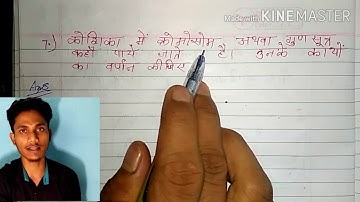 Made with KINEMASTER
7.) कोशिका में क्रोमोसोम अथवा गुण सूत्र
कहाँ पाये जाते है। उनके कार्यो
का वर्णन कीजिए
Ans